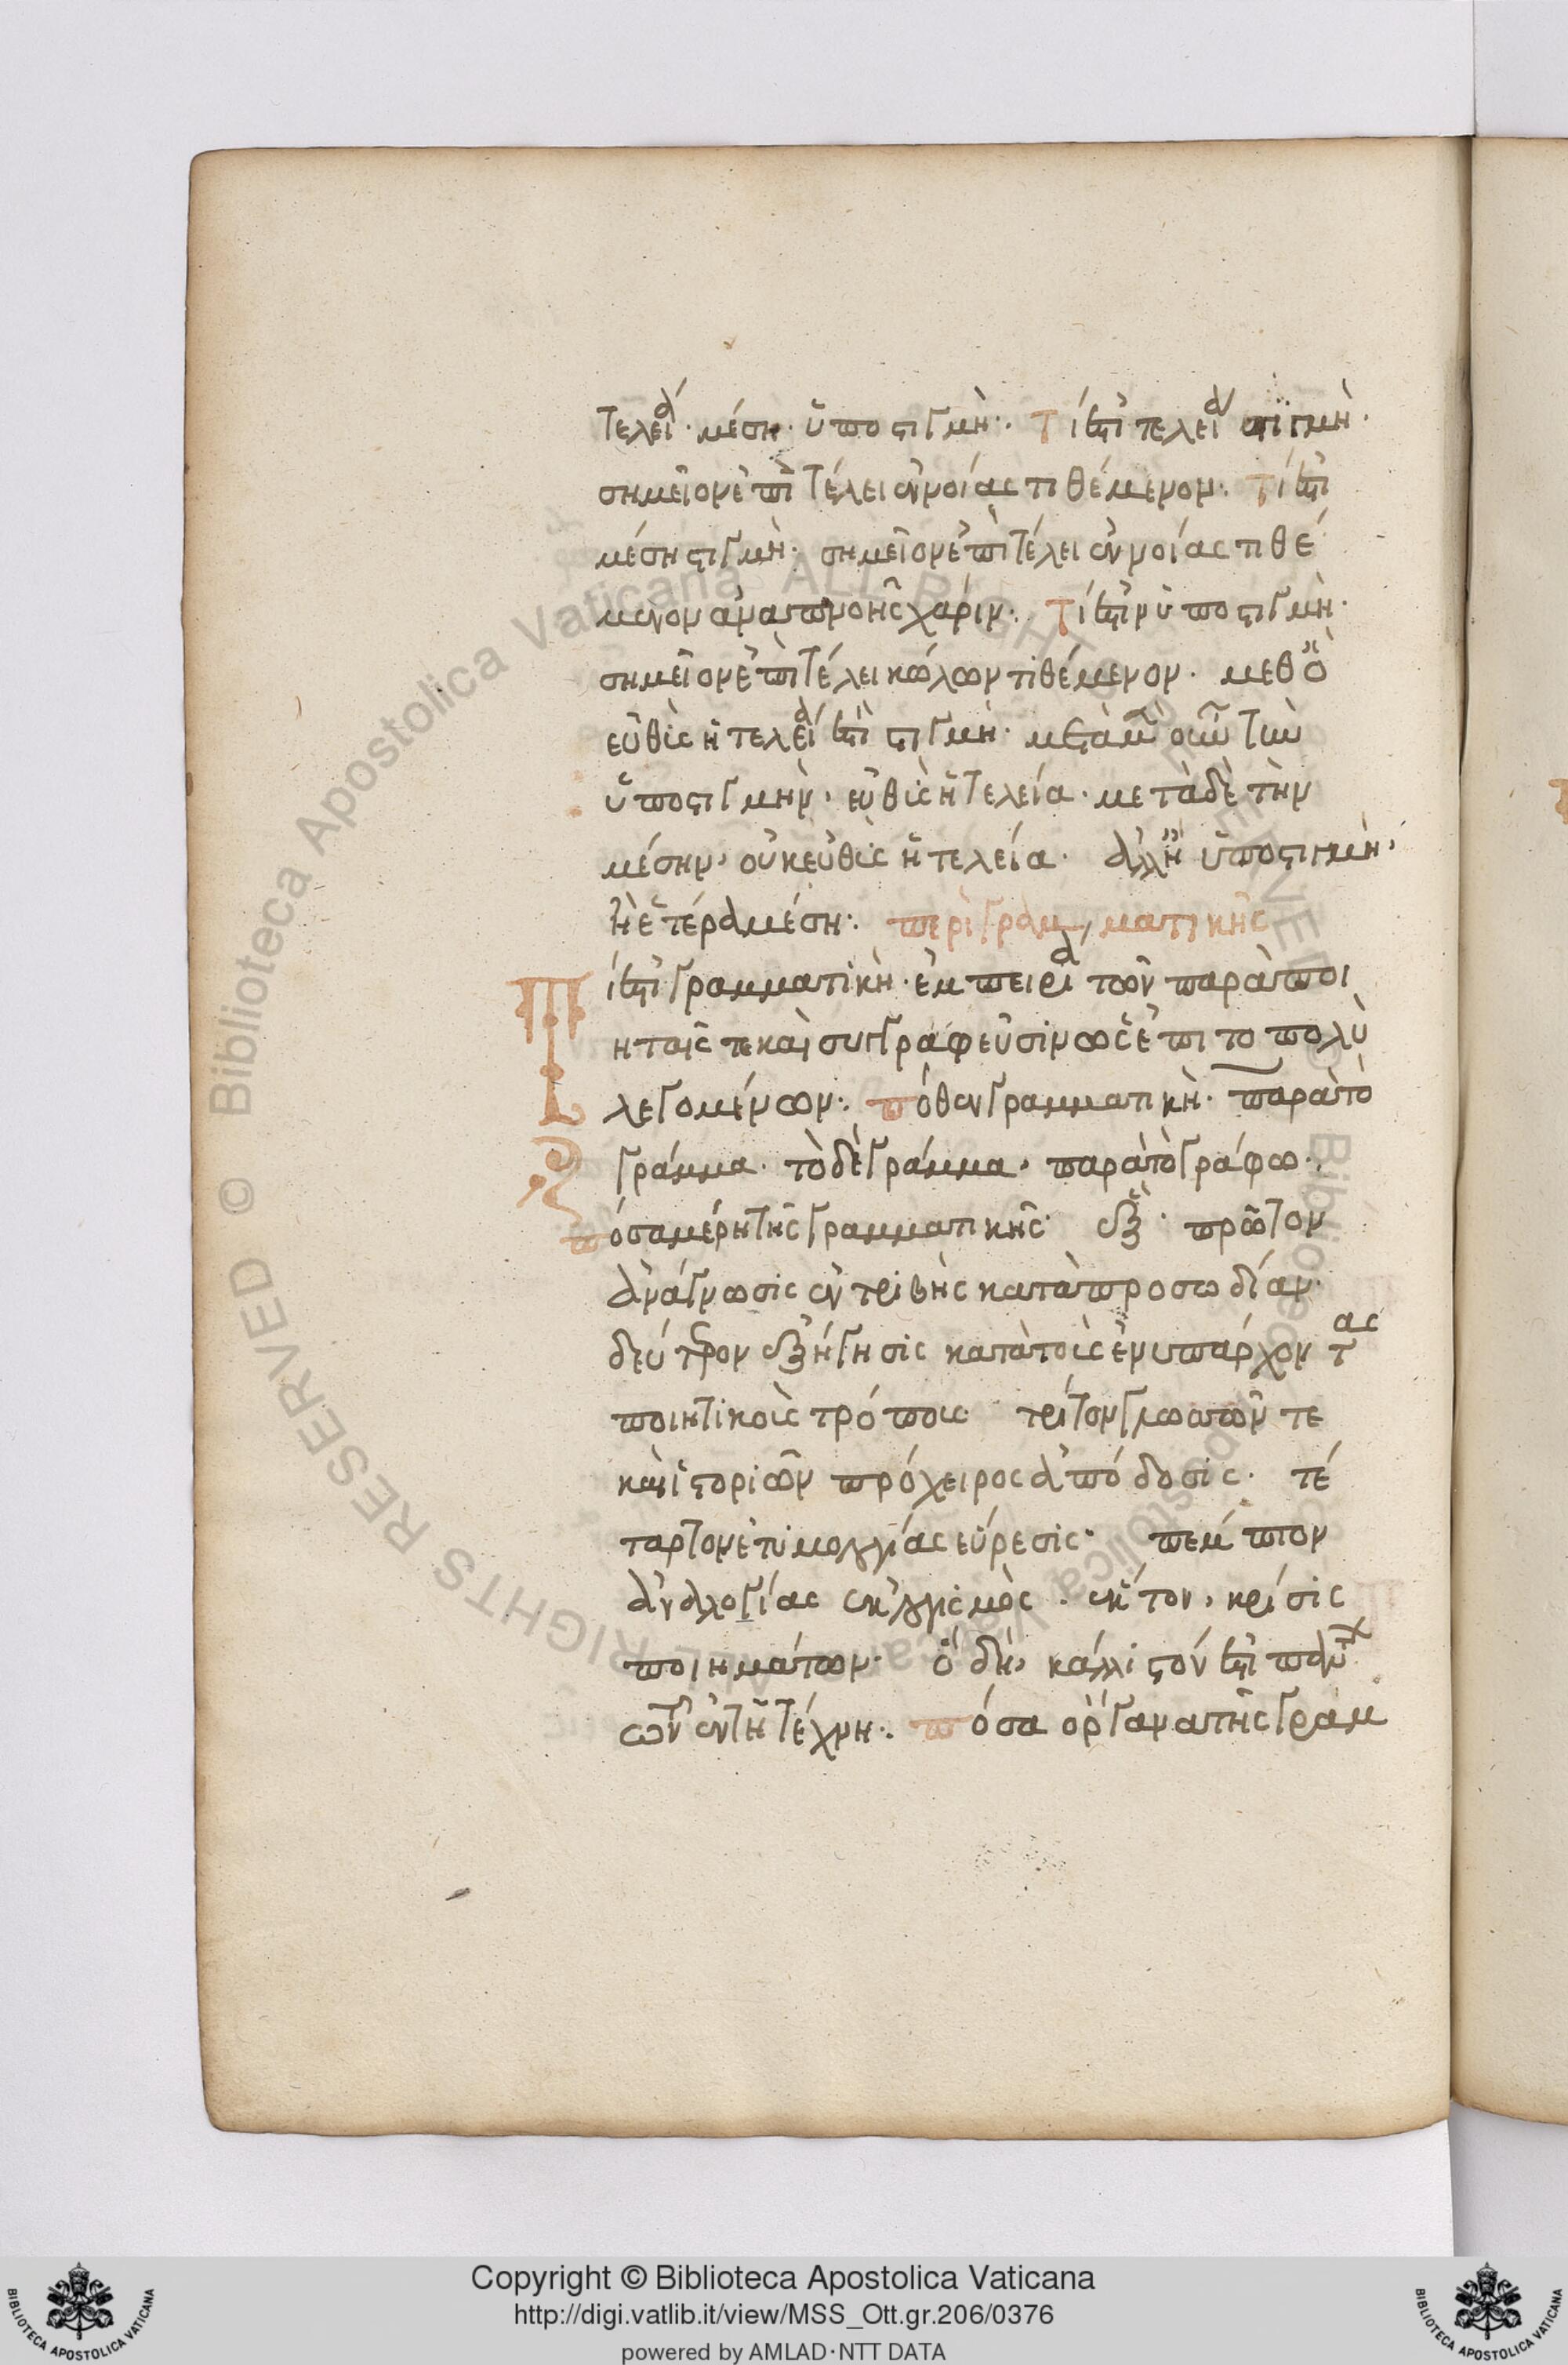 τελεία· μέση· ὑποστιγμή· Τί ἐστι τελεία στιγμή·
σημεῖον ἐπὶ τέλει ἐννοίας τιθέμενον· τί ἐστι
μέση στιγμή· σημεῖον ἐπὶ τέλει ἐννοίας τιθέ
μενον ἀναπνοῆς χάριν· Τί ἐστιν ὑποστιγμή·
σημεῖον ἐπὶ τέλει κώλων τιθέμενον· μεθ' ὃ
εὐθὺς ἡ τελεία ἐστὶ στιγμή· μετὰ μὲν οὖν τὴν
ὑποστιγμήν, εὐθὺς ἡ τελεία· μετὰ δὲ τὴν
μέσην, οὐκ εὐθὺς ἡ τελεία· ἀλλ' ἢ ὑποστιγμή,
ἢ ἑτέρα μέση· περὶ γραμματικῆς
Τί ἐστι γραμματική· ἐμπειρία τῶν παρὰ ποι
ηταῖς τε καὶ συγγραφεῦσιν ὡς ἐπὶ το πολὺ
λεγομένων· πόθεν γραμματική· παρὰ τὸ
γράμμα· τὸ δὲ γράμμα, παρὰ τὸ γράφω·
πόσα μέρη τῆς γραμματικῆς· ἕξ· πρῶτον
ἀνάγνωσις ἐντριβὴς κατὰ προσωδίαν·
δεύτερον ἐξήγησις κατὰ τοὺς ἐνυπάρχοντας
ποιητικοὺς τρόπους· τρίτον γλωσσῶν τε
καὶ ἱστοριῶν πρόχειρος ἀπόδοσις· τέ
ταρτον ἐτυμολογίας εὕρεσις· πέμπτον
ἀναλογίας ἐκλογισμὸς· ἕκτον, κρίσις
ποιημάτων· ὃ δὴ, κάλλιστόν ἐστι πάντων
τῶν ἐν τῇ τέχνη· πόσα ὄργανα τῆς γραμ
Copyright © Biblioteca Apostolica Vaticana
http://digi.vatlib.it/view/MSS_Ott.gr.206/0376
powered by AMLAD·NTT DATA